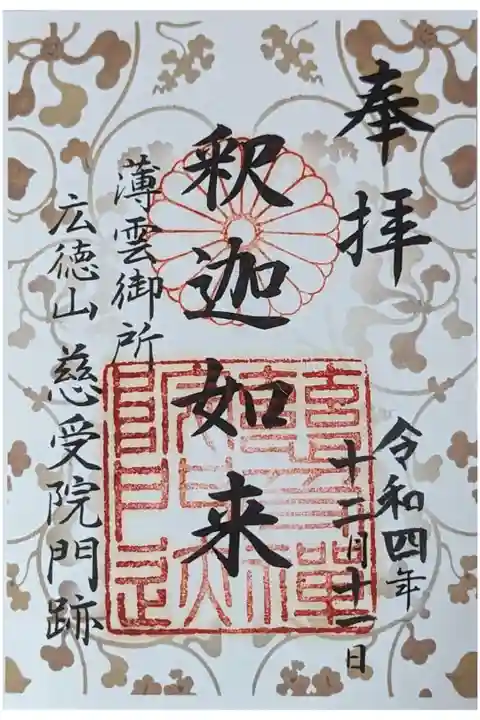 奉拝
令和四年
十二月十一日
釈迦如来
薄雲御所
広徳山 慈受院門跡